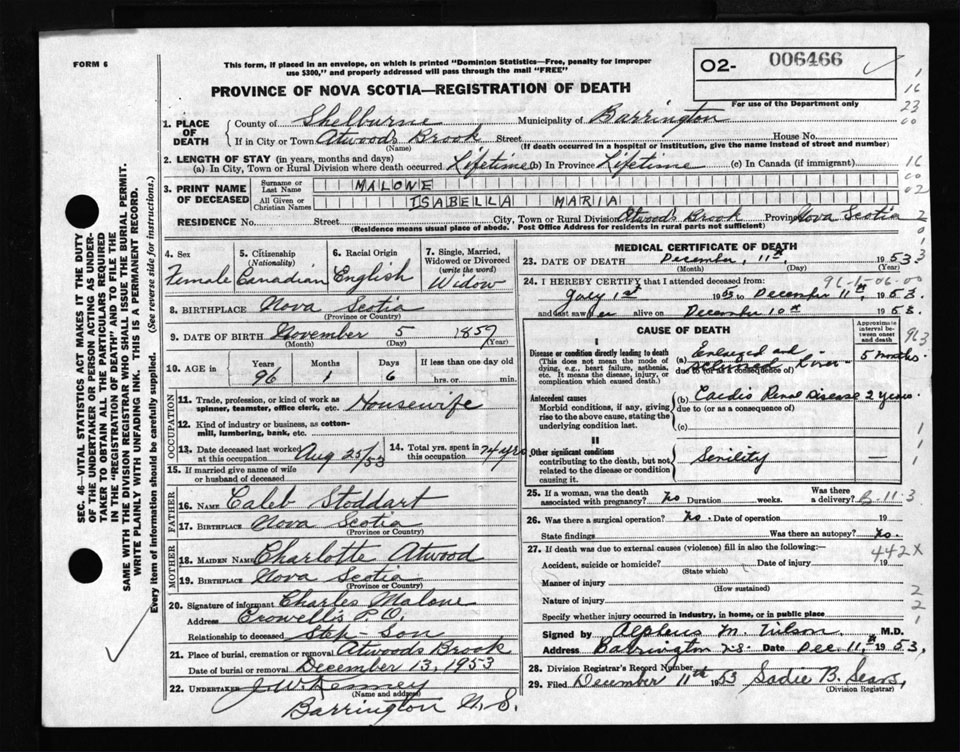 FORM 6
This form, if placed in an envelope, on which is printed "Dominion Statistics—Free, penalty for improper
use $300," and properly addressed will pass through the mail "FREE"
O2- 006466
For use of the Department only
PROVINCE OF NOVA SCOTIA—REGISTRATION OF DEATH
1. PLACE OF DEATH
County of Shelburne Municipality of Barrington
If in City or Town Atwoods Brook Street House No.
(Name) (If death occurred in a hospital or institution, give the name instead of street and number)
2. LENGTH OF STAY (in years, months and days)
(a) In City, Town or Rural Division where death occurred Lifetime (b) In Province Lifetime (c) In Canada (if immigrant)
3. PRINT NAME OF DECEASED
Surname or Last Name MALONE
All Given or Christian Names ISABELLA MARIA
RESIDENCE No. Street City, Town or Rural Division Atwoods Brook Province Nova Scotia
(Residence means usual place of abode. Post Office Address for residents in rural parts not sufficient)
4. Sex Female
5. Citizenship (Nationality) Canadian
6. Racial Origin English
7. Single, Married, Widowed or Divorced (write the word) Widow
8. BIRTHPLACE Nova Scotia
(Province or Country)
9. DATE OF BIRTH November 5 1857
(Month) (Day) (Year)
10. AGE in Years 96 Months 1 Days 6 If less than one day old hrs. or min.
OCCUPATION
11. Trade, profession or kind of work as spinner, teamster, office clerk, etc. Housewife
12. Kind of industry or business, as cotton-mill, lumbering, bank, etc.
13. Date deceased last worked at this occupation Aug 25/53
14. Total yrs. spent in this occupation 74 yrs
15. If married give name of wife or husband of deceased
FATHER
16. NAME Caleb Stoddart
17. BIRTHPLACE Nova Scotia
(Province or Country)
MOTHER
18. MAIDEN NAME Charlotte Atwood
19. BIRTHPLACE Nova Scotia
(Province or Country)
20. Signature of informant Charles Malone
Address Crowell's P.O.
Relationship to deceased Step-Son
21. Place of burial, cremation or removal Atwoods Brook
Date of burial or removal December 13, 1953
22. UNDERTAKER J. W. Kenney
(Name and address)
Barrington N. S.
MEDICAL CERTIFICATE OF DEATH
23. DATE OF DEATH December, 11th, 1953
(Month) (Day) (Year)
24. I HEREBY CERTIFY that I attended deceased from:
July 1st 1953 to December 11th, 1953.
and last saw her alive on December 10th 1953.
CAUSE OF DEATH
Approximate interval between onset and death
I
Disease or condition directly leading to death
(This does not mean the mode of dying, e.g., heart failure, asthenia, etc. It means the disease, injury, or complication which caused death.)
(a) Enlarged and Liver 5 months.
due to (or as a consequence of)
Antecedent causes
Morbid conditions, if any, giving rise to the above cause, stating the underlying condition last.
(b) Cardio Renal Disease 2 years.
due to (or as a consequence of)
(c)
II
Other significant conditions
contributing to the death, but not related to the disease or condition causing it.
Senility
25. If a woman, was the death associated with pregnancy? No Duration weeks. Was there a delivery?
26. Was there a surgical operation? No. Date of operation 19
State findings Was there an autopsy? No.
27. If death was due to external causes (violence) fill in also the following:—
442X
Accident, suicide or homicide? Date of injury 19
(State which)
Manner of injury
(How sustained)
Nature of injury
Specify whether injury occurred in industry, in home, or in public place
Signed by M. M.D.
Address Barrington N.S. Date Dec. 11th 1953.
28. Division Registrar's Record Number
29. Filed December 11th 1953 Sadie B. Sears,
(Division Registrar)
SEC. 46—VITAL STATISTICS ACT MAKES IT THE DUTY
OF THE UNDERTAKER OR PERSON ACTING AS UNDER-
TAKER TO OBTAIN ALL THE PARTICULARS REQUIRED
IN THE "REGISTRATION OF DEATH" AND TO FILE THE
SAME WITH THE DIVISION REGISTRAR WHO SHALL ISSUE THE BURIAL PERMIT.
WRITE PLAINLY WITH UNFADING INK. THIS IS A PERMANENT RECORD.
Every item of information should be carefully supplied. (See reverse side for instructions.)